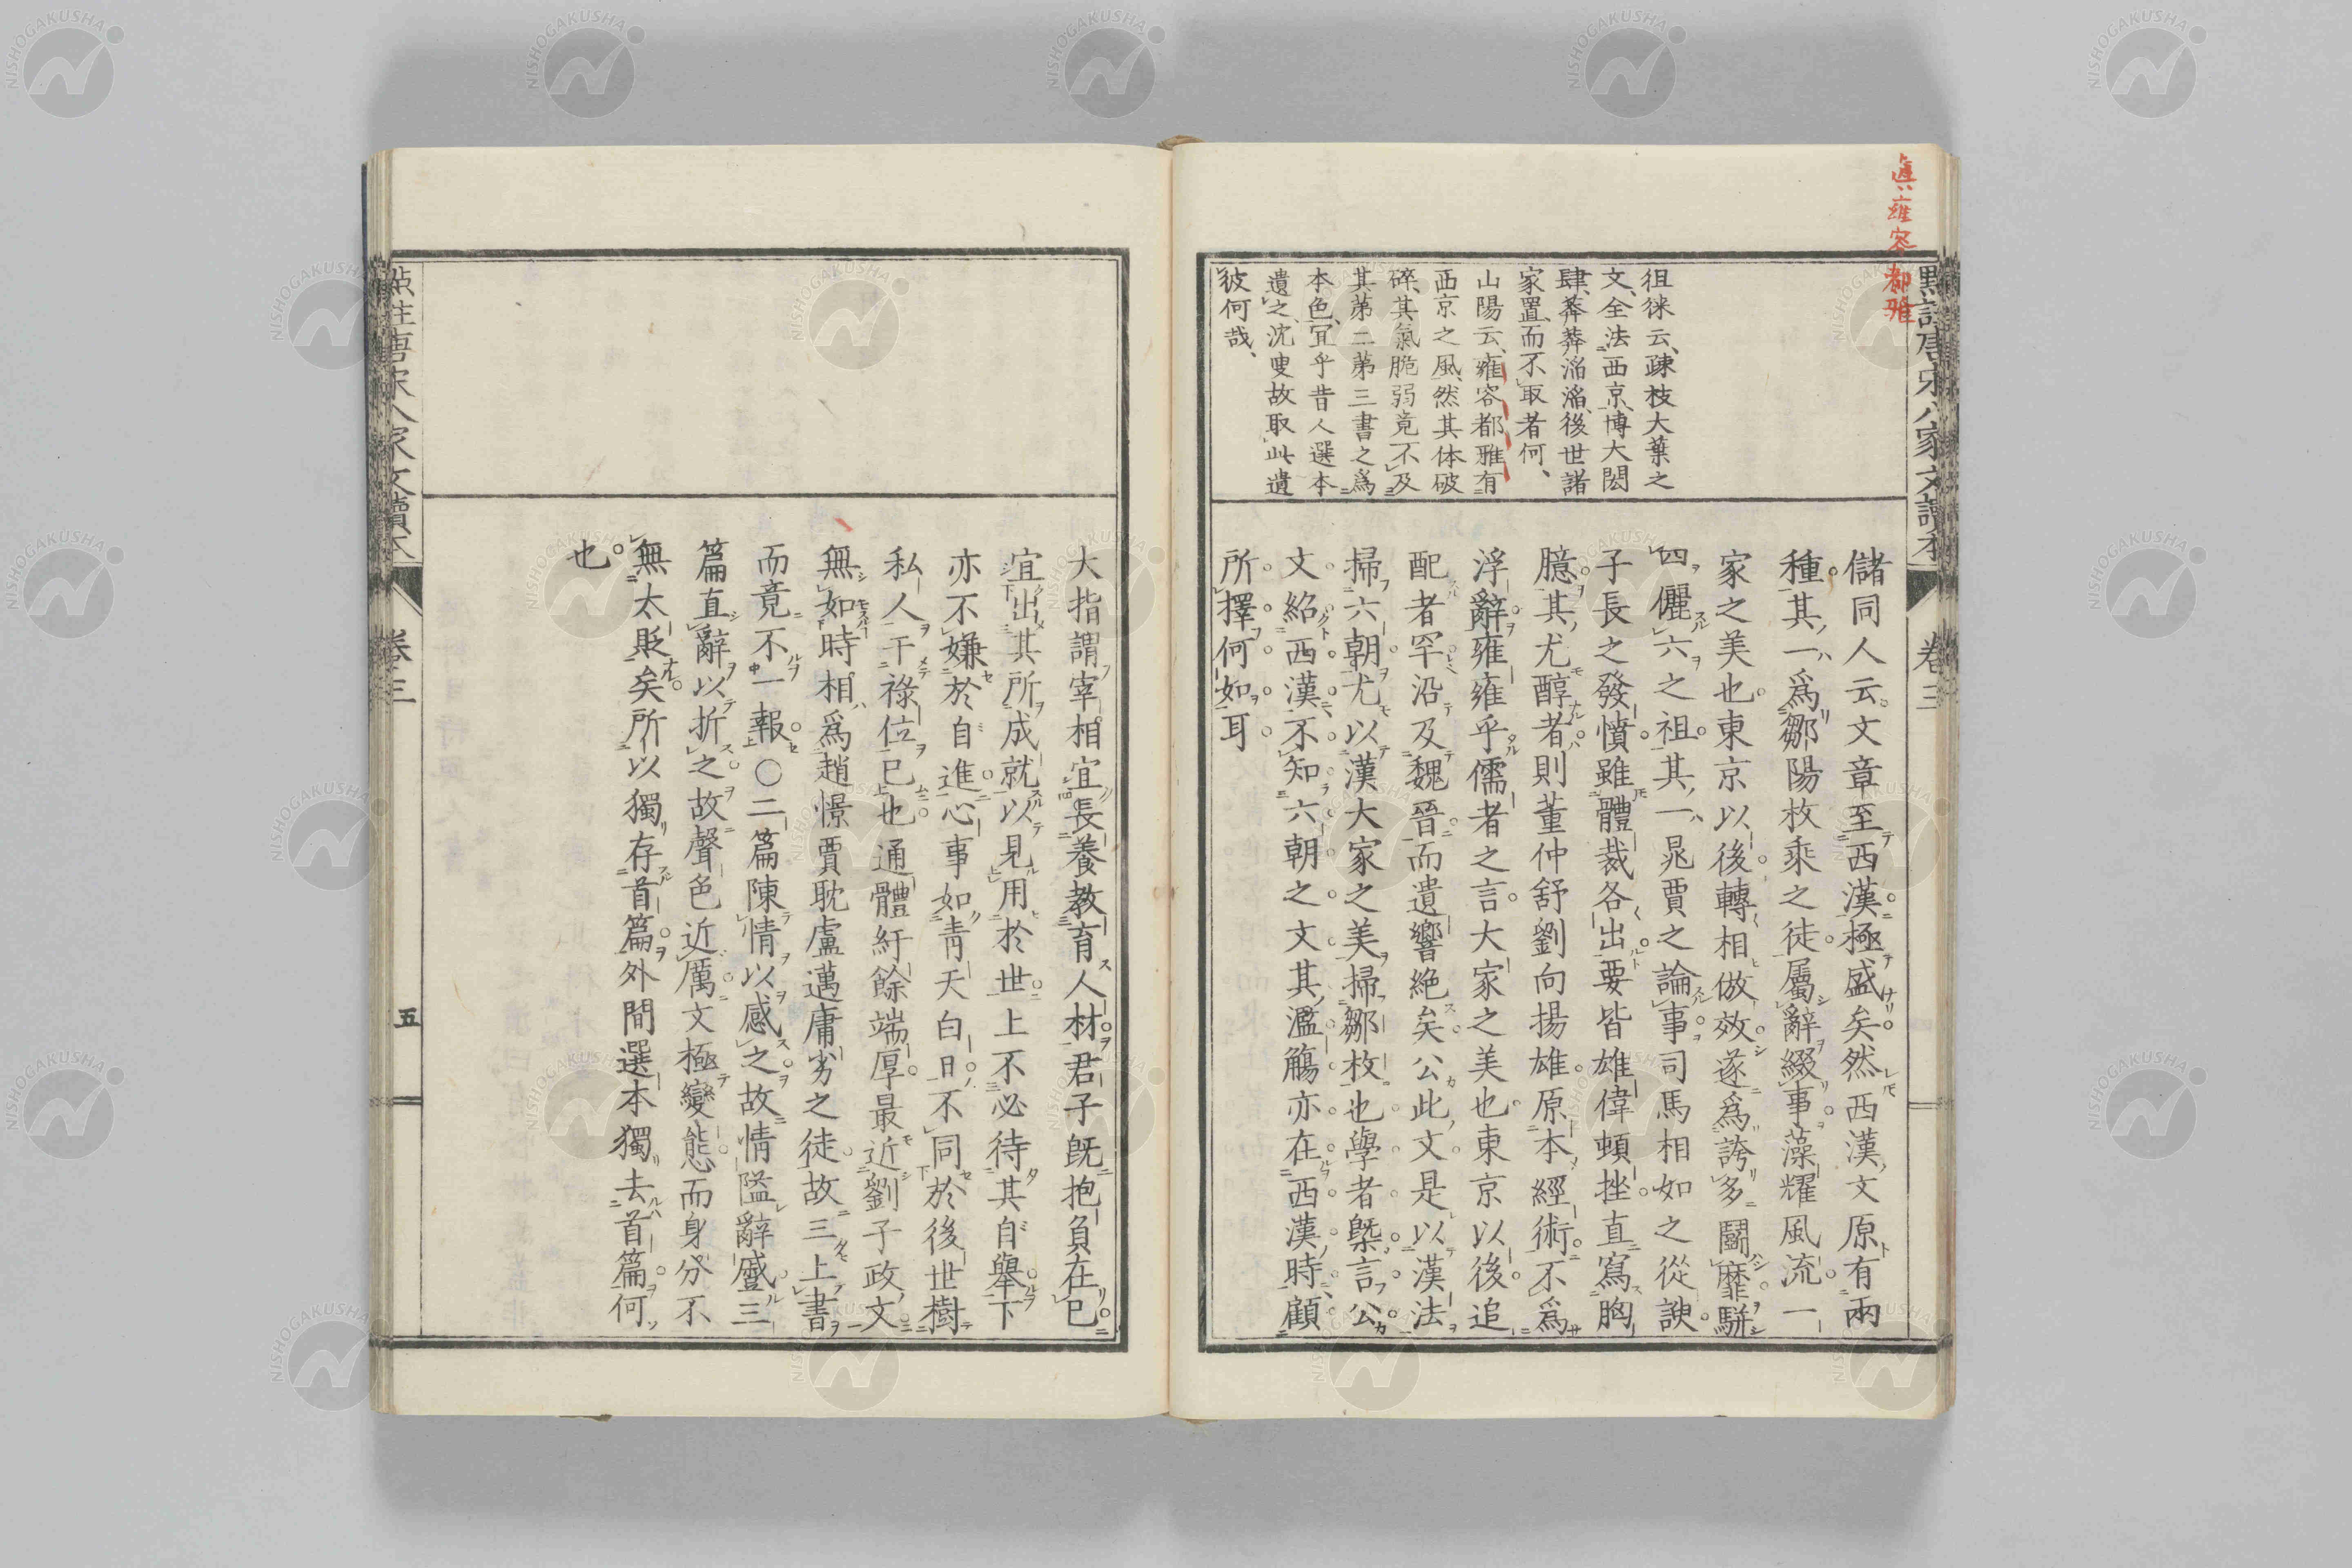 雍容都雅
徂徠云、疎枝大葉之
文、全法西京、博大閎
肆、莽莽滔滔、後世諸
家置而不取者何、
山陽云、雍容都雅有
西京之風、然其体破
碎、其氣脆弱竟不及
其第二第三書之爲
本色、冝乎昔人選本
遺之、沈叟故取此遺
彼何哉、
點註唐宋八家文讀本
卷三
儲同人云文章至西漢極盛矣然西漢文原有兩
種其一爲鄒陽枚乘之徒屬辭綴事藻耀風流一
家之美也東京以後轉相倣效遂爲誇多鬪靡駢
四儷六之祖其一晁賈之論事司馬相如之從諛
子長之發憤雖體裁各出要皆雄偉頓挫直寫胸
臆其尤醇者則董仲舒劉向揚雄原本經術不爲
浮辭雍雍乎儒者之言大家之美也東京以後追
配者罕沿及魏晉而遺響絕矣公此文是以漢法
掃六朝尤以漢大家之美掃鄒枚也學者槩言公
文紹西漢不知六朝之文其濫觴亦在西漢時顧
所擇何如耳
大指謂宰相宜長養教育人材君子既抱負在已
宜出其所成就以見用於世上不必待其自舉下
亦不嫌於自進心事如靑天白日不同於後世樹
私人干祿位已也通體紆餘端厚最近劉子政文
無如時相爲趙憬賈耽盧邁庸劣之徒故三上書
而竟不一報〇二篇陳情以感之故情隘辭蹙三
篇直辭以折之故聲色近厲文極變態而身分不
無太貶矣所以獨存首篇外間選本獨去首篇何
也
点註唐宋八家文讀本
卷三
五
NISHOGAKUSHA